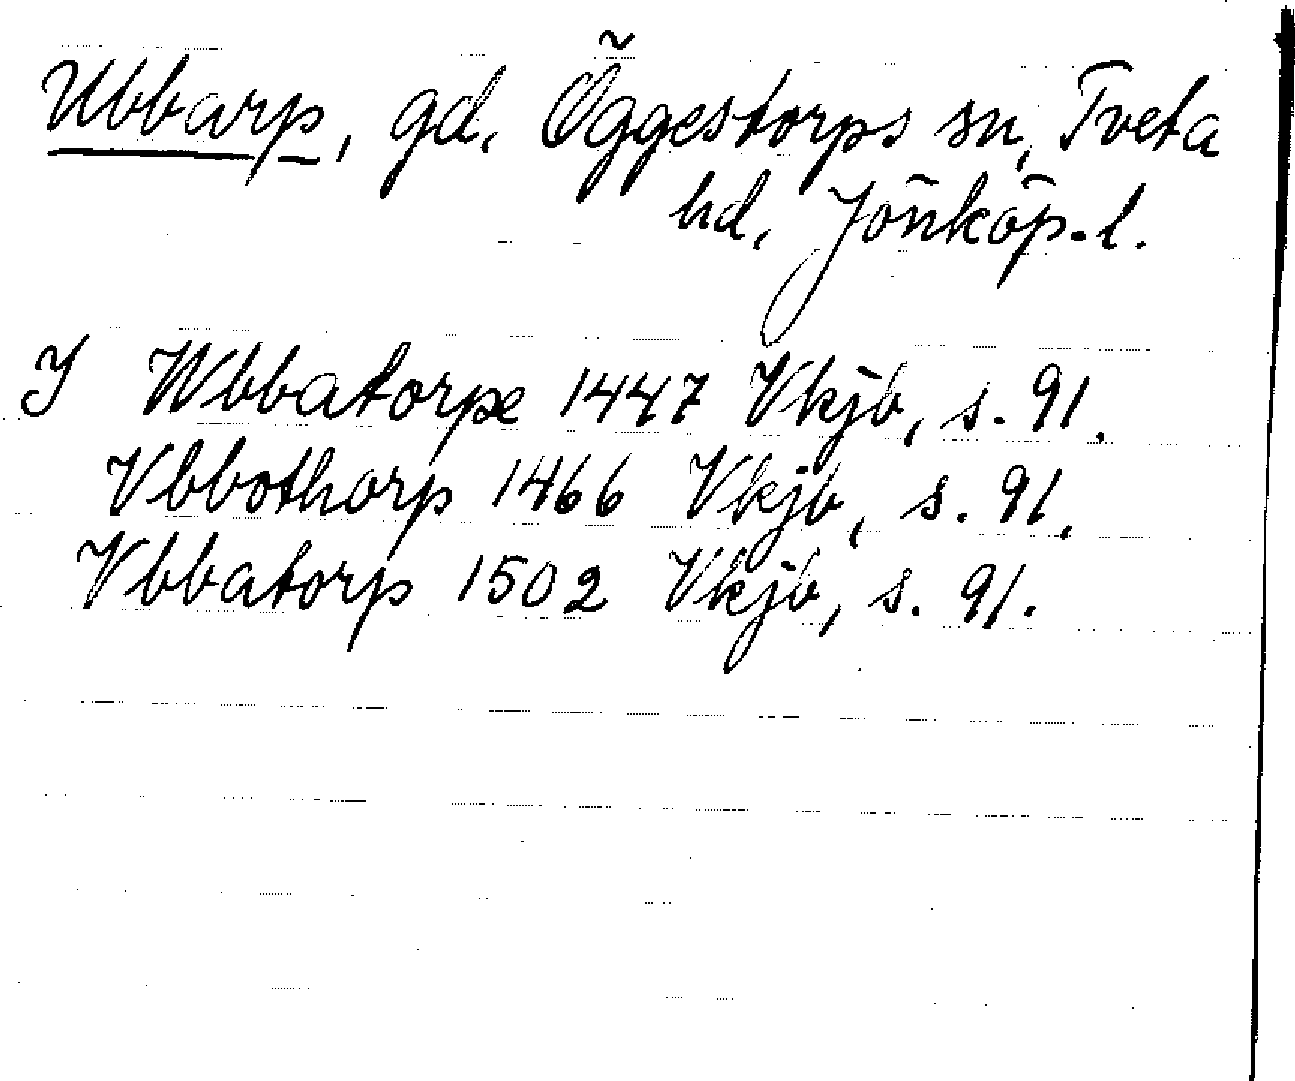 Ubbarp, gd, Öggestorps sn, Tveta
hd, Jönköp.l.
J Wbbatorpe 1447 Vkjb, s. 91.
Vbbothorp 1466 Vkjb, s. 91.
Vbbatorp 1502 Vkjb, s. 91.